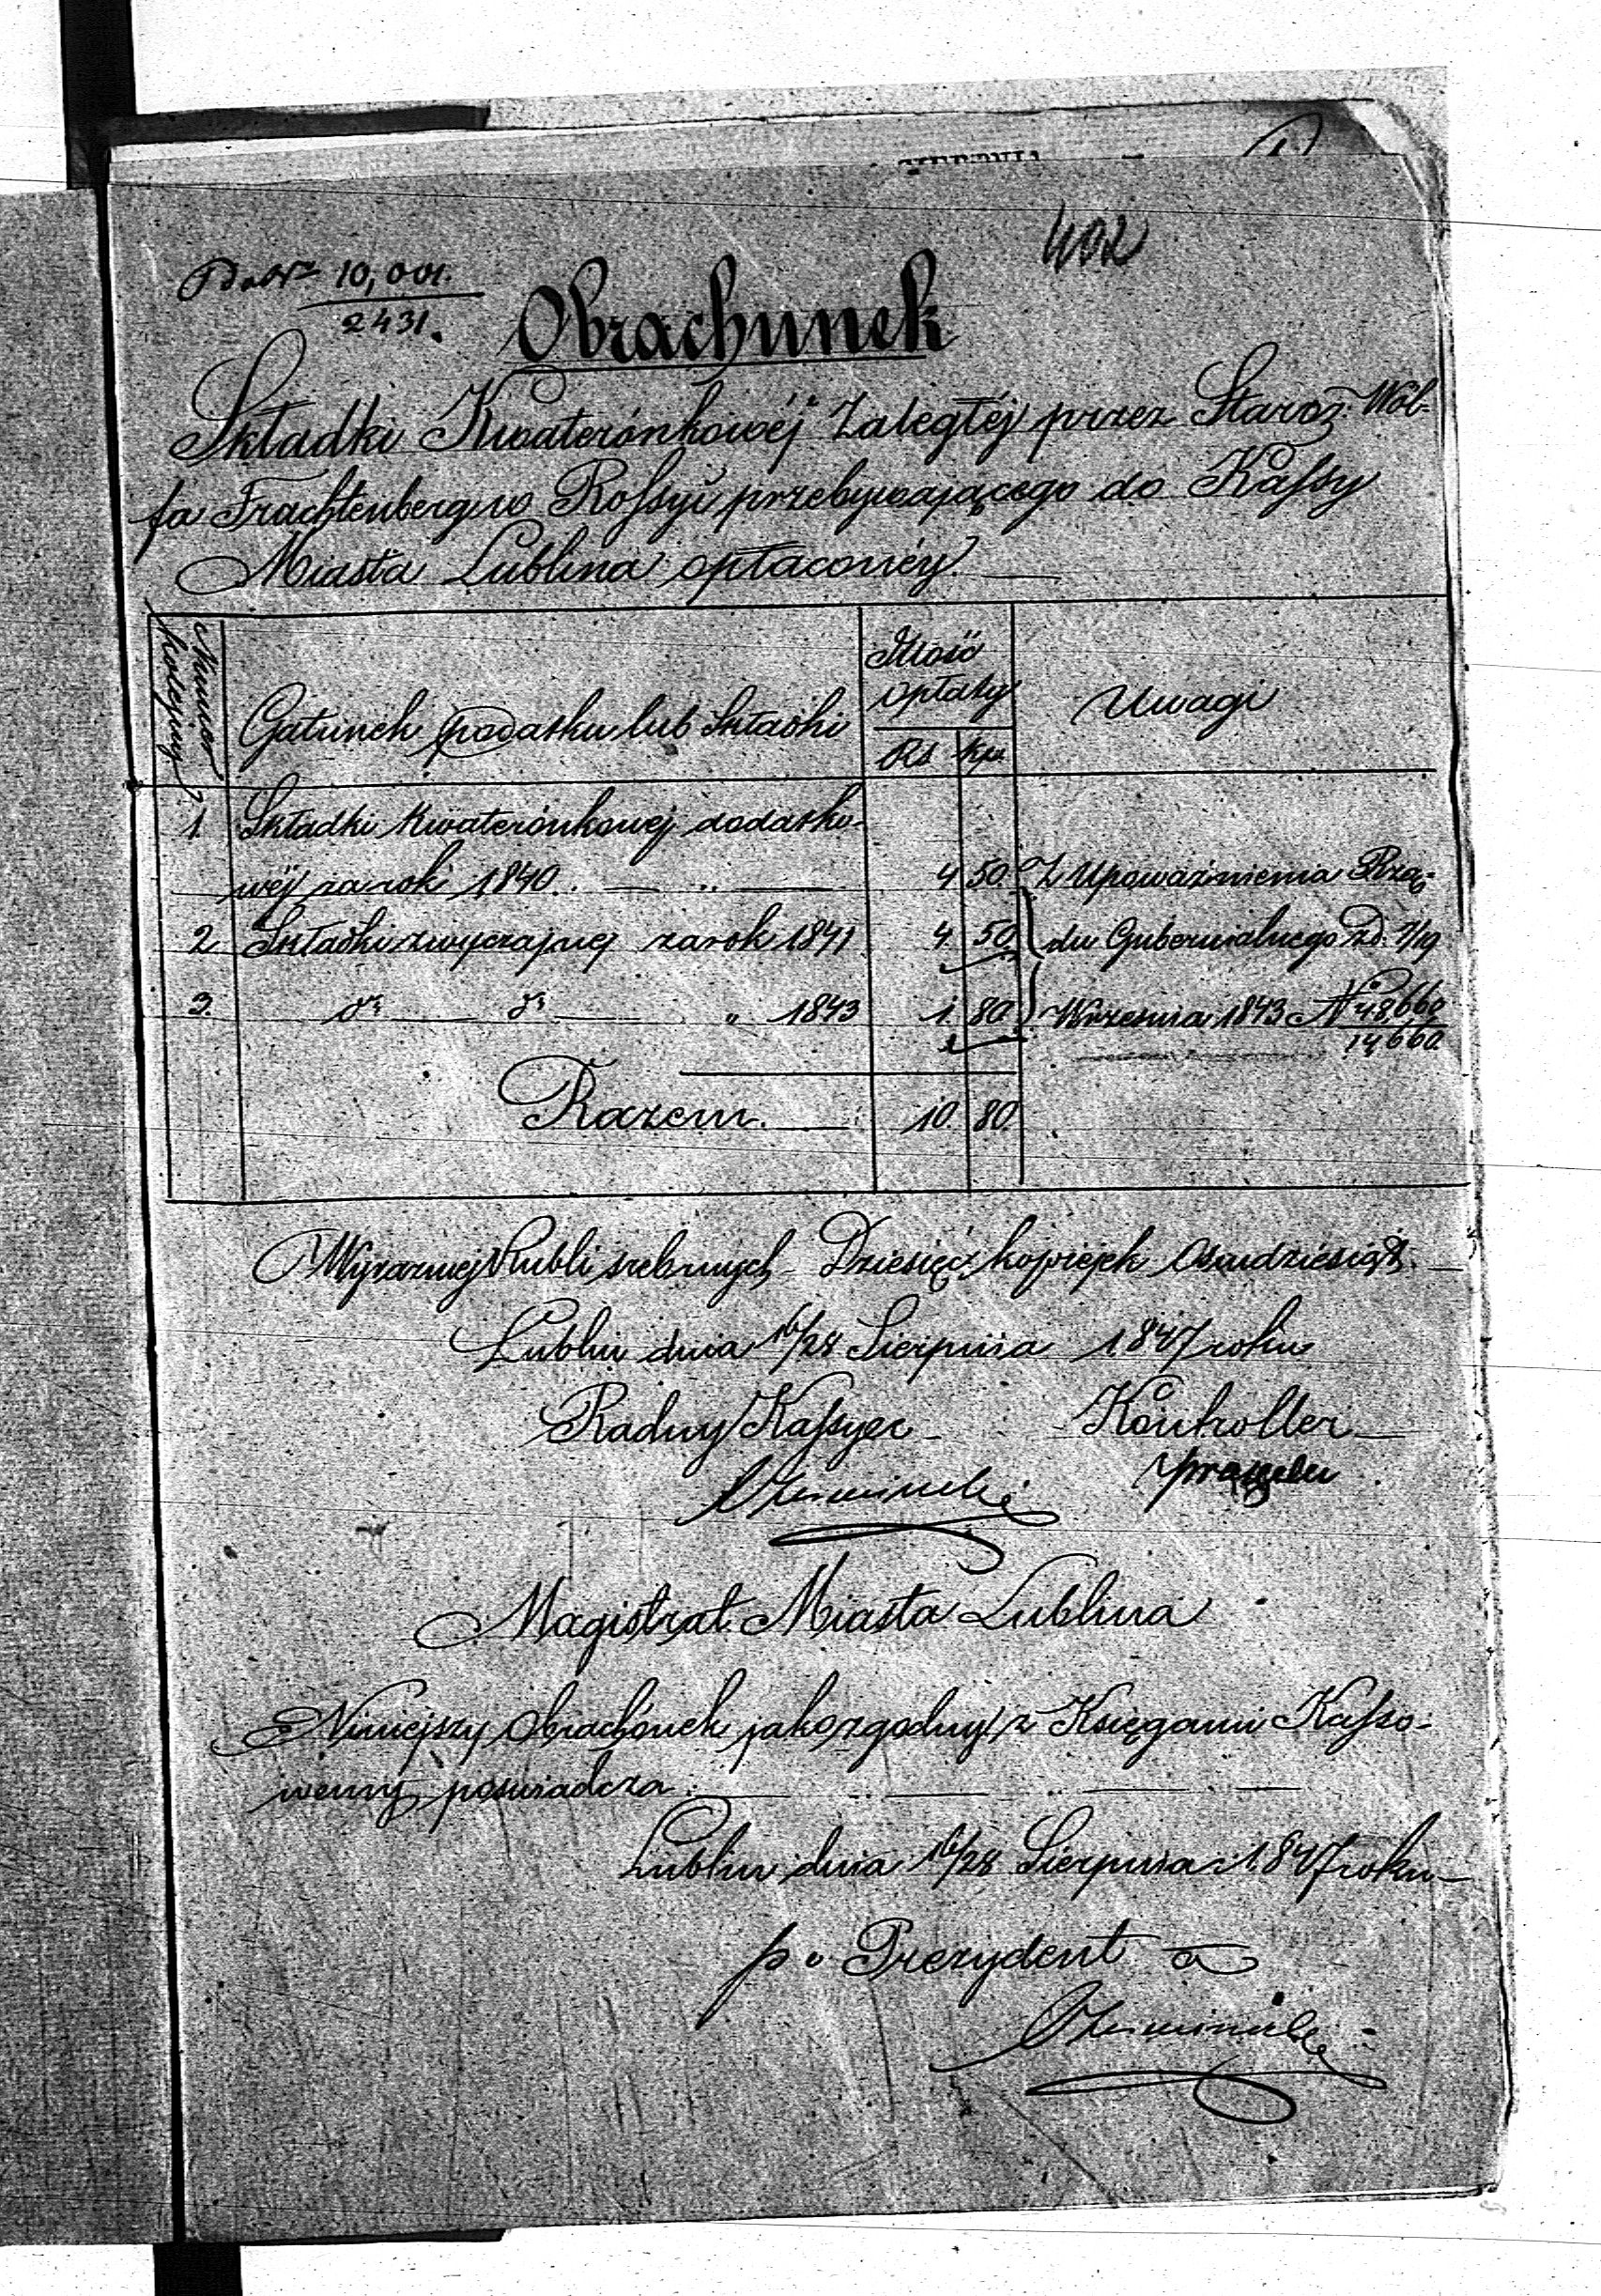 402
10,001.
2431.
Obrachunek
Składki Kwaterónkowéj Zaległéj przez Staroz. Wól-
fa Frachtenberg w Rossyi przebywającego do Kassy
Miasta Lublina opłaconéy.
Numer kolejny
Gatunek podatku lub Składki
Ilość opłaty
Rs. Kp.
Uwagi
1. Składki Kwaterónkowéj dodatko-
wéj za rok 1840 4 50. Z Upoważnienia Rzą-
2 Składki zwyczajnéj za rok 1841 4. 50. du Gubernialnego z d. 7/19
3. do do " 1843 1. 80. Września 1843 N 48660
14660.
Razem. 10. 80.
Wyraznie Rubli srebrnych Dziesięć, kopiejek Osmdziesiąt.
Lublin dnia 16/28 Sierpnia 1847 roku
Radny Kassyer Kontroller
Magistrat Miasta Lublina
Niniejszy obrachónek jako zgodny z Księgami Kasso-
wemi poswiadcza.
Lublin dnia 16/28 Sierpnia 1847 roku
p o Prezydent a